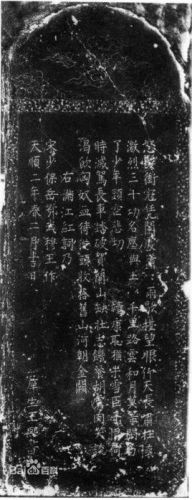 怒髮衝冠凭闌處瀟瀟雨歇擡望眼仰天長嘯壯懷
激烈三十功名塵與土八千里路雲和月莫等閑白
了少年頭空悲切 靖康恥猶未雪臣子恨何
時滅駕長車踏破賀蘭山缺壯志飢餐胡虜肉笑談
渴飲匈奴血待從頭收拾舊山河朝金闕
右滿江紅詞乃
宋少保岳鄂武穆王作
天順二年春二月吉日
庠生王熙
Bai百科